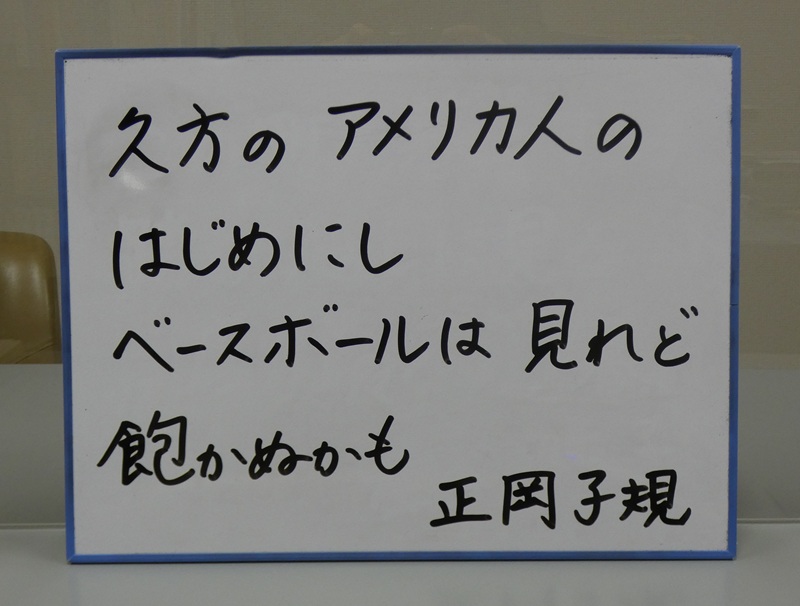 久方の アメリカ人の
はじめにし
ベースボールは 見れど
飽かぬかも
正岡子規